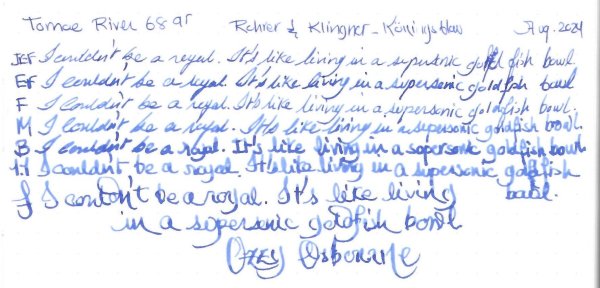 Tomoe River 68 gr Rohrer & Klingner - Königsblau Aug. 2024
EEF I couldn't be a royal. It's like living in a supersonic goldfish bowl
EF I couldn't be a royal. It's like living in a supersonic goldfish bowl
F I couldn't be a royal. It's like living in a supersonic goldfish bowl.
M I couldn't be a royal. It's like living in a supersonic goldfish bowl.
B I couldn't be a royal. It's like living in a supersonic goldfish bowl
1.1 I couldn't be a royal. It's like living in a supersonic goldfish bowl.
I couldn't be a royal. It's like living
in a supersonic goldfish bowl
Ozzy Osbourne